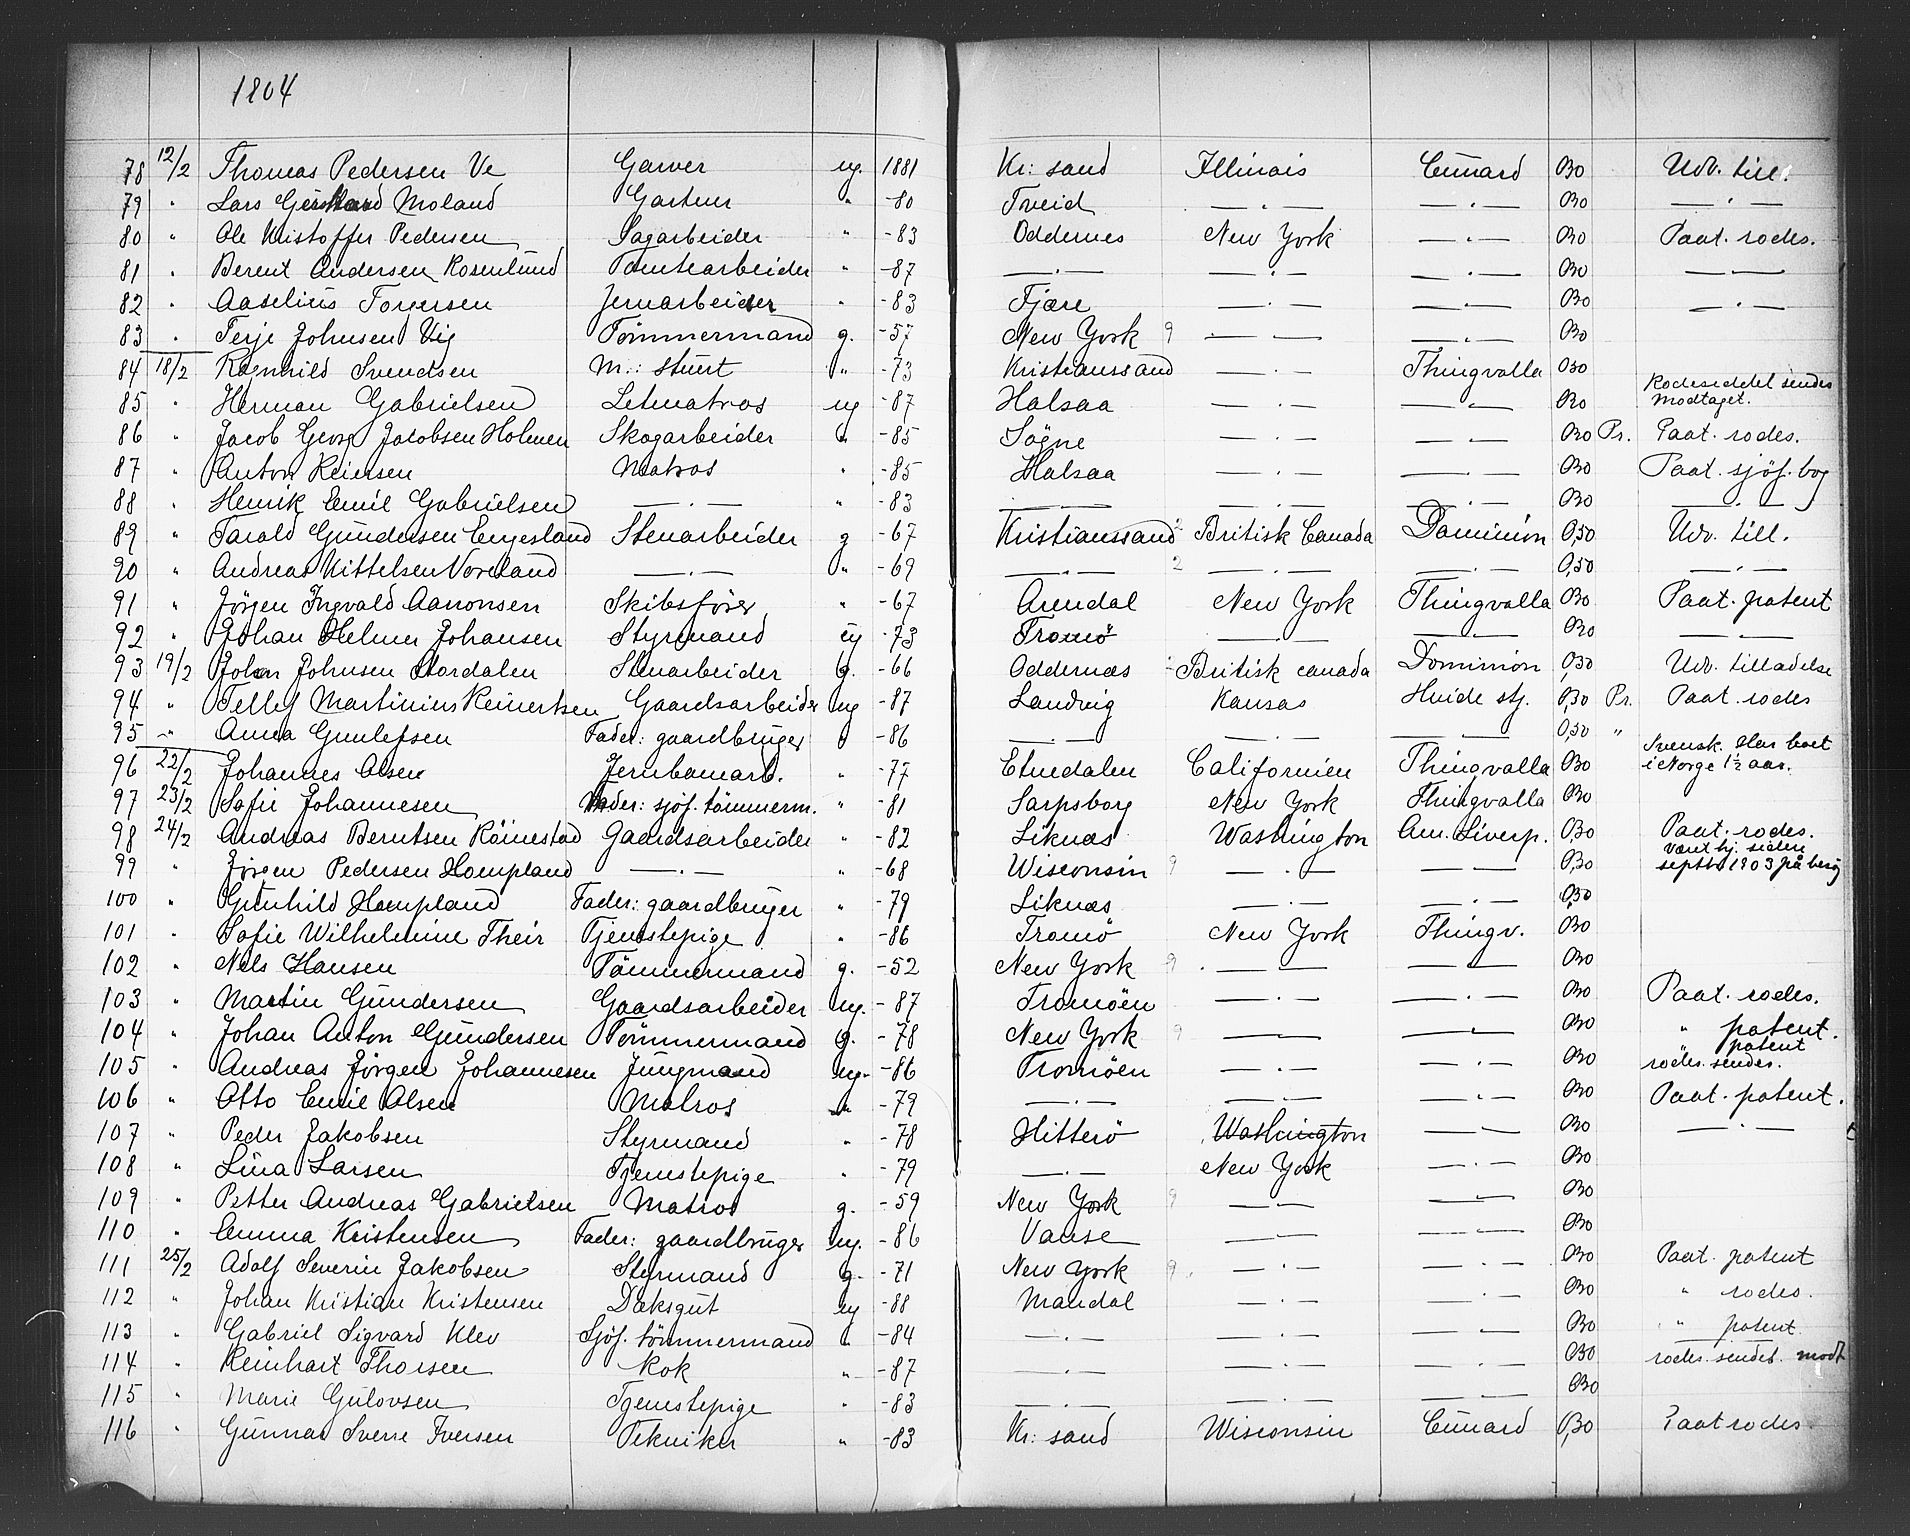 1904
78 12/2 Thomas Pedersen Ve Garver ug. 1881 Kr: sand Illinois Cunard 030 Udv. till.
79 " Lars Moland Gartner " -80 Tveid — " — — " — 030 — " —
80 " Ole Kristoffer Pedersen Sagarbeider " -83 Oddernes New York — " — 030 Paat. rodes.
81 " Berent Andersen Rosenlund Tomtearbeider " -87 — " — — " — — " — 030 — " —
82 " Aaselius Torgersen Jernarbeider " -83 Fjære — " — — " — 030 — " —
83 " Terje Johnsen Vig Tömmermand g. -57 New York 9 — " — — " — 030
84 18/2 Ragnhild Svendsen M.: stuert " -73 Kristianssand — " — Thingvalla 030
85 " Herman Gabrielsen Letmatros ug -87 Halsaa — " — — " — 030 Rodeseddel sendes Modtaget.
86 " Jacob Georg Jacobsen Holmen Skogarbeider " -85 Sögne — " — — " — 030 Pr. Paat. rodes.
87 " Anton Reiersen Matros " -85 Halsaa — " — — " — 030 Paat. sjöf. bog
88 " Henrik Emil Gabrielsen — " — " -83 — " — — " — — " — 030 — " —
89 " Tarald Gundersen Engesland Stenarbeider g -67 Kristianssand 2 Britisk Canada Dominion 0,50 Udv. till.
90 " Andreas Kittelsen Voreland — " — " -69 — " — 2 — " — — " — 0,50 — " —
91 " Jörgen Ingvald Aanonsen Skibsförer " -67 Arendal New York Thingvalla 030 Paat. patent
92 " Johan Helmer Johansen Styrmand ug -73 Tromö — " — — " — 030 — " —
93 19/2 Johan Johnsen Stordalen Stenarbeider g. -66 Oddernæs Britisk canada Dominion 0,30 Udv. tilladelse
94 " Tellef Martinius Reinertsen Gaardsarbeider ug -87 Landvig Kansas Hvide stj. 0,30 Pr. Paat. rodes
95 " Anna Gunlefsen Fader: gaardbruger " -86 — " — — " — — " — 0,50 "
96 22/2 Johannes Olsen Jernbanearb. " -77 Etnedalen Californien Thingvalla 030 Svensk. Har boet i Norge 1½ aar.
97 23/2 Sofie Johannesen Fader: sjöf. tömmerm. " -81 Sarpsborg New York Thingvalla 030
98 24/2 Andreas Berntsen Röinestad Gaardsarbeider " -82 Liknæs Washington Am. Liverp. 0,30 Paat. rodes.
99 " Jörgen Pedersen Hompland — " — " -68 Wisconsin 9 — " — — " — 0,30 Været hj. siden septb 1903 på besøg
100 " Gunhild Hompland Fader: gaardbruger " -79 Liknæs — " — — " — 0,30
101 " Sofie Wilhelmine Their Tjenstepige " -86 Tromö New York Thingv. 030
102 " Nels Hansen Tömmermand g. -52 New York 9 — " — — " — 030
103 " Martin Gundersen Gaardsarbeider ug. -87 Tromöen — " — — " — 030 Paat. rodes.
104 " Johan Anton Gundersen Tömmermand g. -78 New York 9 — " — — " — 030 " patent.
105 " Andreas Jörgen Johannesen Jungmand ug. -86 Tromöen — " — — " — 030 " patent rodes. sendes.
106 " Otto Emil Olsen Matros " -79 — " — — " — — " — 030 Paat. patent.
107 " Peder Jakobsen Styrmand " -78 Hitterö Washington — " — 030 — " —
108 " Lina Larsen Tjenestepige " -79 — " — New York — " — 030
109 " Petter Andreas Gabrielsen Matros g. -59 New York 9 — " — — " — 030
110 " Emma Kristensen Fader: gaardbruger ug. -86 Vanse — " — — " — 030
111 25/2 Adolf Severin Jakobsen Styrmand g. -71 New York 9 — " — — " — 030 Paat. patent
112 " Johan Kristian Kristensen Dæksgut ug -88 Mandal — " — — " — 030 " rodes.
113 " Gabriel Sigvard Klev Sjöf. tömmermand " -84 — " — — " — — " — 030 " patent
114 " Reinhart Thorsen Kok " -87 — " — — " — — " — 030 rodes. sendes. modt
115 " Marie Gulovsen Tjenestepige " -83 — " — — " — — " — 030
116 " Gunnar Sverre Iversen Tekniker " -83 Kr: sand Wisconsin Cunard 0,30 Paat rodes.